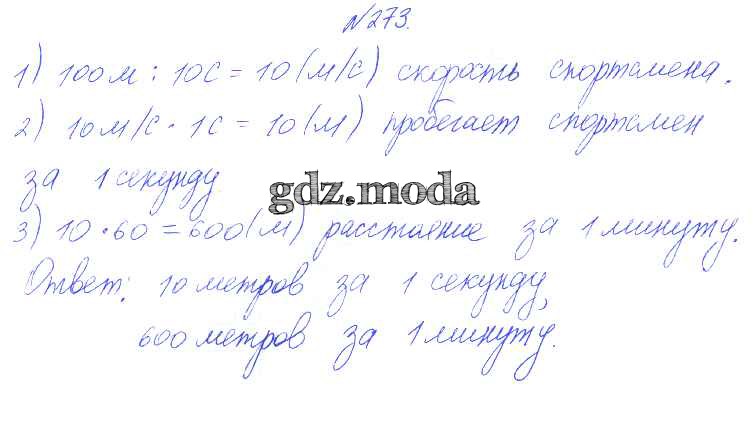 №273.
1) 100м : 10с = 10 (м/с) скорость спортсмена.
2) 10м/с · 1с = 10 (м) пробегает спортсмен
за 1 секунду
gdz.moda
3) 10 · 60 = 600 (м) расстояние за 1 минуту.
Ответ: 10 метров за 1 секунду,
600 метров за 1 минуту.